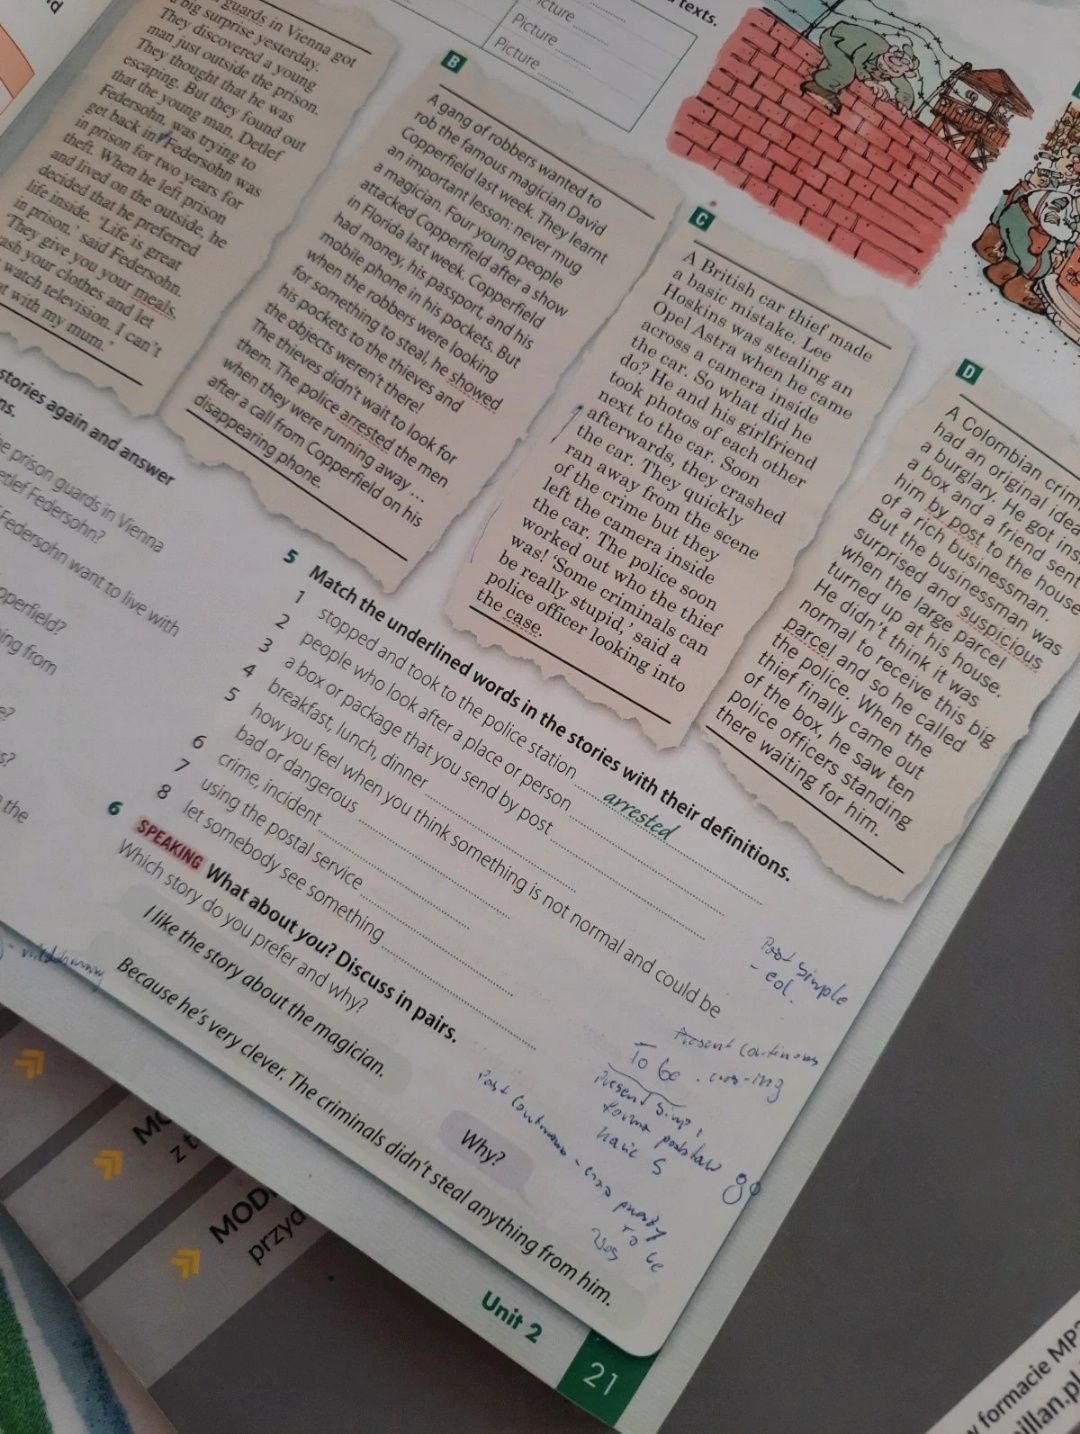 texts.
Picture
Picture
Picture
guards in Vienna got
big surprise yesterday.
They discovered a young
man just outside the prison.
They thought that he was
escaping. But they found out
that the young man, Detlef
Federsohn, was trying to
get back in! Federsohn was
in prison for two years for
theft. When he left prison
and lived on the outside, he
decided that he preferred
life inside. 'Life is great
in prison.' said Federsohn.
'They give you your meals,
your clothes and let
watch television. I can't
with my mum.'
B
A gang of robbers wanted to
rob the famous magician David
Copperfield last week. They learnt
an important lesson: never mug
a magician. Four young people
attacked Copperfield after a show
in Florida last week. Copperfield
had money, his passport, and his
mobile phone in his pockets. But
when the robbers were looking
for something to steal, he showed
his pockets to the thieves and
the objects weren't there!
The thieves didn't wait to look for
them. The police arrested the men
when they were running away ...
after a call from Copperfield on his
disappearing phone.
C
A British car thief made
a basic mistake. Lee
Hoskins was stealing an
Opel Astra when he came
across a camera inside
the car. So what did he
do? He and his girlfriend
took photos of each other
next to the car. Soon
afterwards, they crashed
the car. They quickly
ran away from the scene
of the crime but they
left the camera inside
the car. The police soon
worked out who the thief
was! 'Some criminals can
be really stupid,' said a
police officer looking into
the case.
D
A Colombian
had an original idea
a burglary. He got
a box and a friend sent
him by post to the house
of a rich businessman.
But the businessman was
surprised and suspicious
when the large parcel
turned up at his house.
He didn't think it was
normal to receive this big
parcel and so he called
the police. When the
thief finally came out
of the box, he saw ten
police officers standing
there waiting for him.
stories again and answer
prison guards in Vienna
Federsohn?
Federsohn want to live with
from
the
5 Match the underlined words in the stories with their definitions.
1 stopped and took to the police station arrested
2 people who look after a place or person
3 a box or package that you send by post
4 breakfast, lunch, dinner
5 how you feel when you think something is not normal and could be
bad or dangerous
6 crime, incident
7 using the postal service
8 let somebody see something
6 SPEAKING What about you? Discuss in pairs.
Which story do you prefer and why?
I like the story about the magician.
Why?
Because he's very clever. The criminals didn't steal anything from him.
Past Simple
- ed.
Present Continuous
To be
Present
Past Continuous
To be
go
Unit 2
21
z
formacie MP3